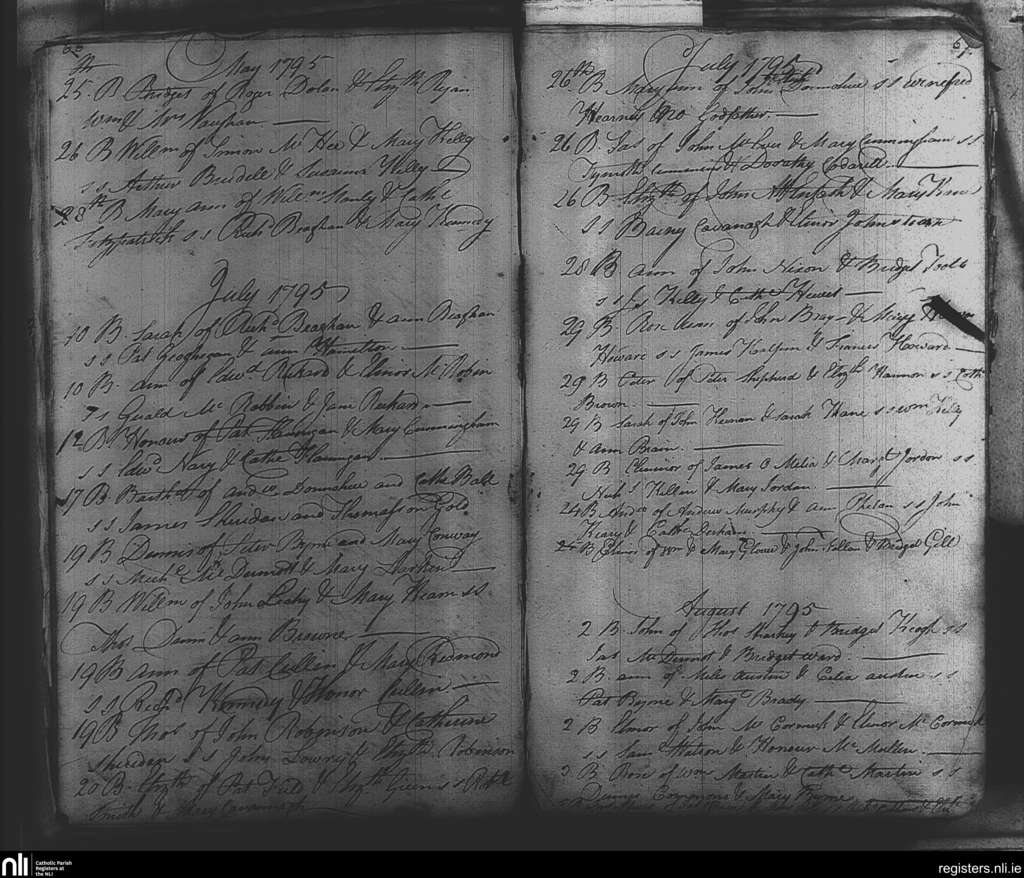 66
May 1795
25 B Bridget of Roger Dolan & Elizth Ryan
Wm & Mrs Vaughan
26 B Willm of Simon Mc Hee & Mary Kelly
s s Arthur Burdell & Susanna Kelly
28th B Mary ann of Willm Manly & Cathe
Fitzpatrick s s Richd Beaghan & Mary Kennedy
July 1795
10 B Sarah of Richd Beaghan & ann Beaghan
s s Pat Geoghegan & ann Hamilton
10 B ann of Edwd Rickard & Elinor Mc Robin
s s Gerald Mc Robbin & Jane Rickard
12 B Honour of Pat Hannigan & Mary Cunningham
s s Edwd Nary & Cathe Flannigan
17 B Barthw of andw Donnahue and Cathe Ball
s s James Sheridan and Thomason Gold
19 B Dennis of Peter Byrne and Mary Conway
s s Michl Mc Dermott & Mary Larkin
19 B Willm of John Leahy & Mary Hearn ss
Thos Dunn & ann Browne
19 B ann of Pat Cullen & Mary Redmond
s s Richd Kennedy & Honor Cullen
19 B Thos of John Robinson & Catherine
Sheridan s s John Lowry & Elizth Robinson
20 B Elizth of Pat & Elizth Green s s Robt
Smith & Mary Cavanagh
67
July 1795
26th B Mary ann of John Donnahue s s Winefred
Hearne & No Godfather
26 B Jas of John Mc & Mary Cunningham ss
Tymoth & Dorothy
26 B Elizth of John & Mary
s s Barny Cavanagh & Elinor Johnston
28 B ann of John Nixon & Bridget Toole
s s Jas Kelly & Cathe Hewet
29 B Rose anne of John Bray & Margt
Heware s s James Halpin & Frances Howard
29 B Peter of Peter Shepherd & Elizth Hannon s s Cathe
Brown
29 B Sarah of John Heenan & Sarah Thane s s Wm Kelly
& Ann Brain
29 B Elinnor of James O Melia & Margt Jordon ss
Nichs Killen & Mary Jordan
24 B Andw of Andrew Murphy & ann Phelan s s John
Keary & Cathe
24 B Elinor of Wm & Mary Glover & John Fallan & Bridget Gill
August 1795
2 B John of Thos Sharkey & Bridget Keogh ss
Jas Mc Dermot & Bridget Ward
2 B ann of Miles Austin & Celia austin ss
Pat Byrne & Margt Brady
2 B Elinor of John Mc Cormick & Elinor Mc Cormick
s s Saml Watson & Honour Mc Mullen
3 B Rose of Wm Martin & Cathe Martin s s
& Mary Byrne
nli
Catholic Parish
Registers at
the NLI
registers.nli.ie